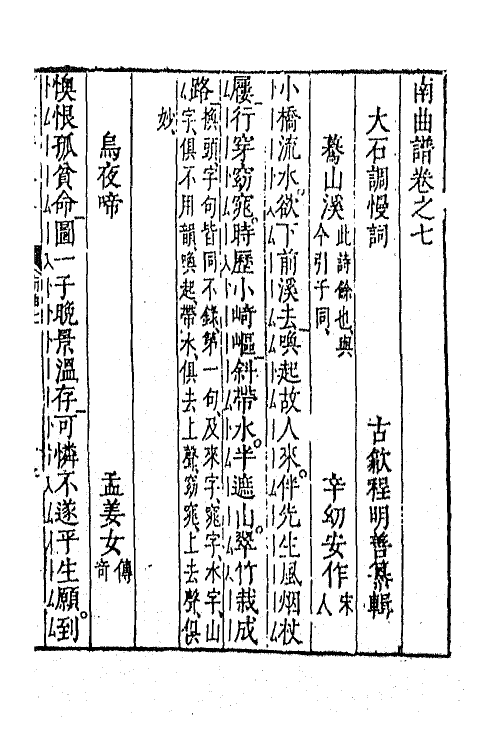 南曲譜卷之七
大石調慢詞 古歙程明善纂輯
驀山溪 此詩餘也與今引子同 辛幼安作 宋人
小橋流水。欲下前溪去。喚起故人來。伴先生風烟杖
屨。行穿窈窕。時歷小崎嶇。斜帶水。半遮山。翠竹栽成
路。換頭字句皆同不錄第一句及來字窕字水字山
字俱不用韻喚起帶水俱去上聲窈窕上去聲俱
妙
烏夜啼 孟姜女 傳奇
懊恨孤貧命。圖一子晚景溫存。可憐不遂平生願。到